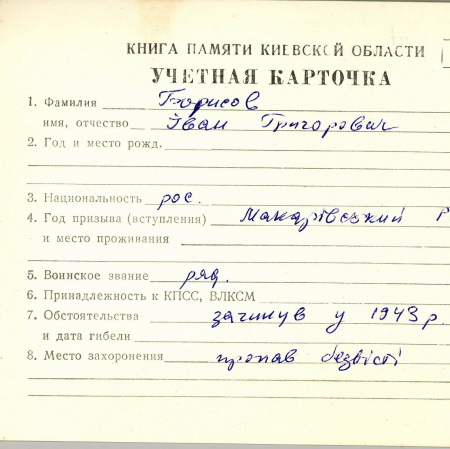 КНИГА ПАМЯТИ КИЕВСКОЙ ОБЛАСТИ
УЧЕТНАЯ КАРТОЧКА
1. Фамилия Борисов
имя, отчество Іван Григорович
2. Год и место рожд.
3. Национальность рос.
4. Год призыва (вступления) Макарівський р
и место проживания
5. Воинское звание ряд.
6. Принадлежность к КПСС, ВЛКСМ
7. Обстоятельства загинув у 1943 р.
и дата гибели
8. Место захоронения пропав безвісті